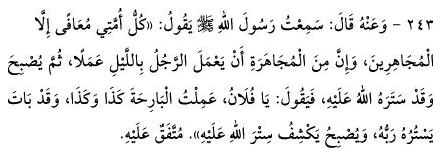 ٢٤٣ - وَعَنْهُ قَالَ: سَمِعْتُ رَسُولَ اللهِ ﷺ يَقُولُ: «كُلُّ أُمَّتِي مُعَافًى إِلَّا
الْمُجَاهِرِينَ، وَإِنَّ مِنَ الْمُجَاهَرَةِ أَنْ يَعْمَلَ الرَّجُلُ بِاللَّيْلِ عَمَلًا، ثُمَّ يُصْبِحَ
وَقَدْ سَتَرَهُ اللهُ عَلَيْهِ، فَيَقُولَ: يَا فُلَانُ، عَمِلْتُ الْبَارِحَةَ كَذَا وَكَذَا، وَقَدْ بَاتَ
يَسْتُرُهُ رَبُّهُ، وَيُصْبِحُ يَكْشِفُ سِتْرَ اللهِ عَلَيْهِ». مُتَّفَقٌ عَلَيْهِ.